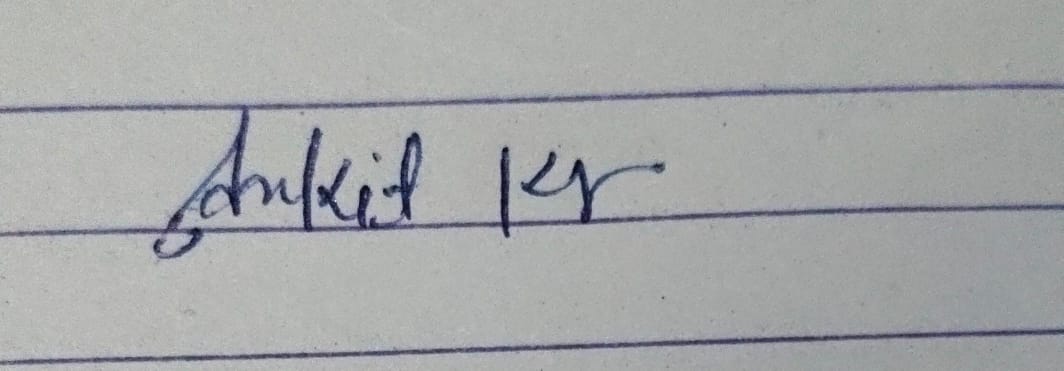 Ankit Kr